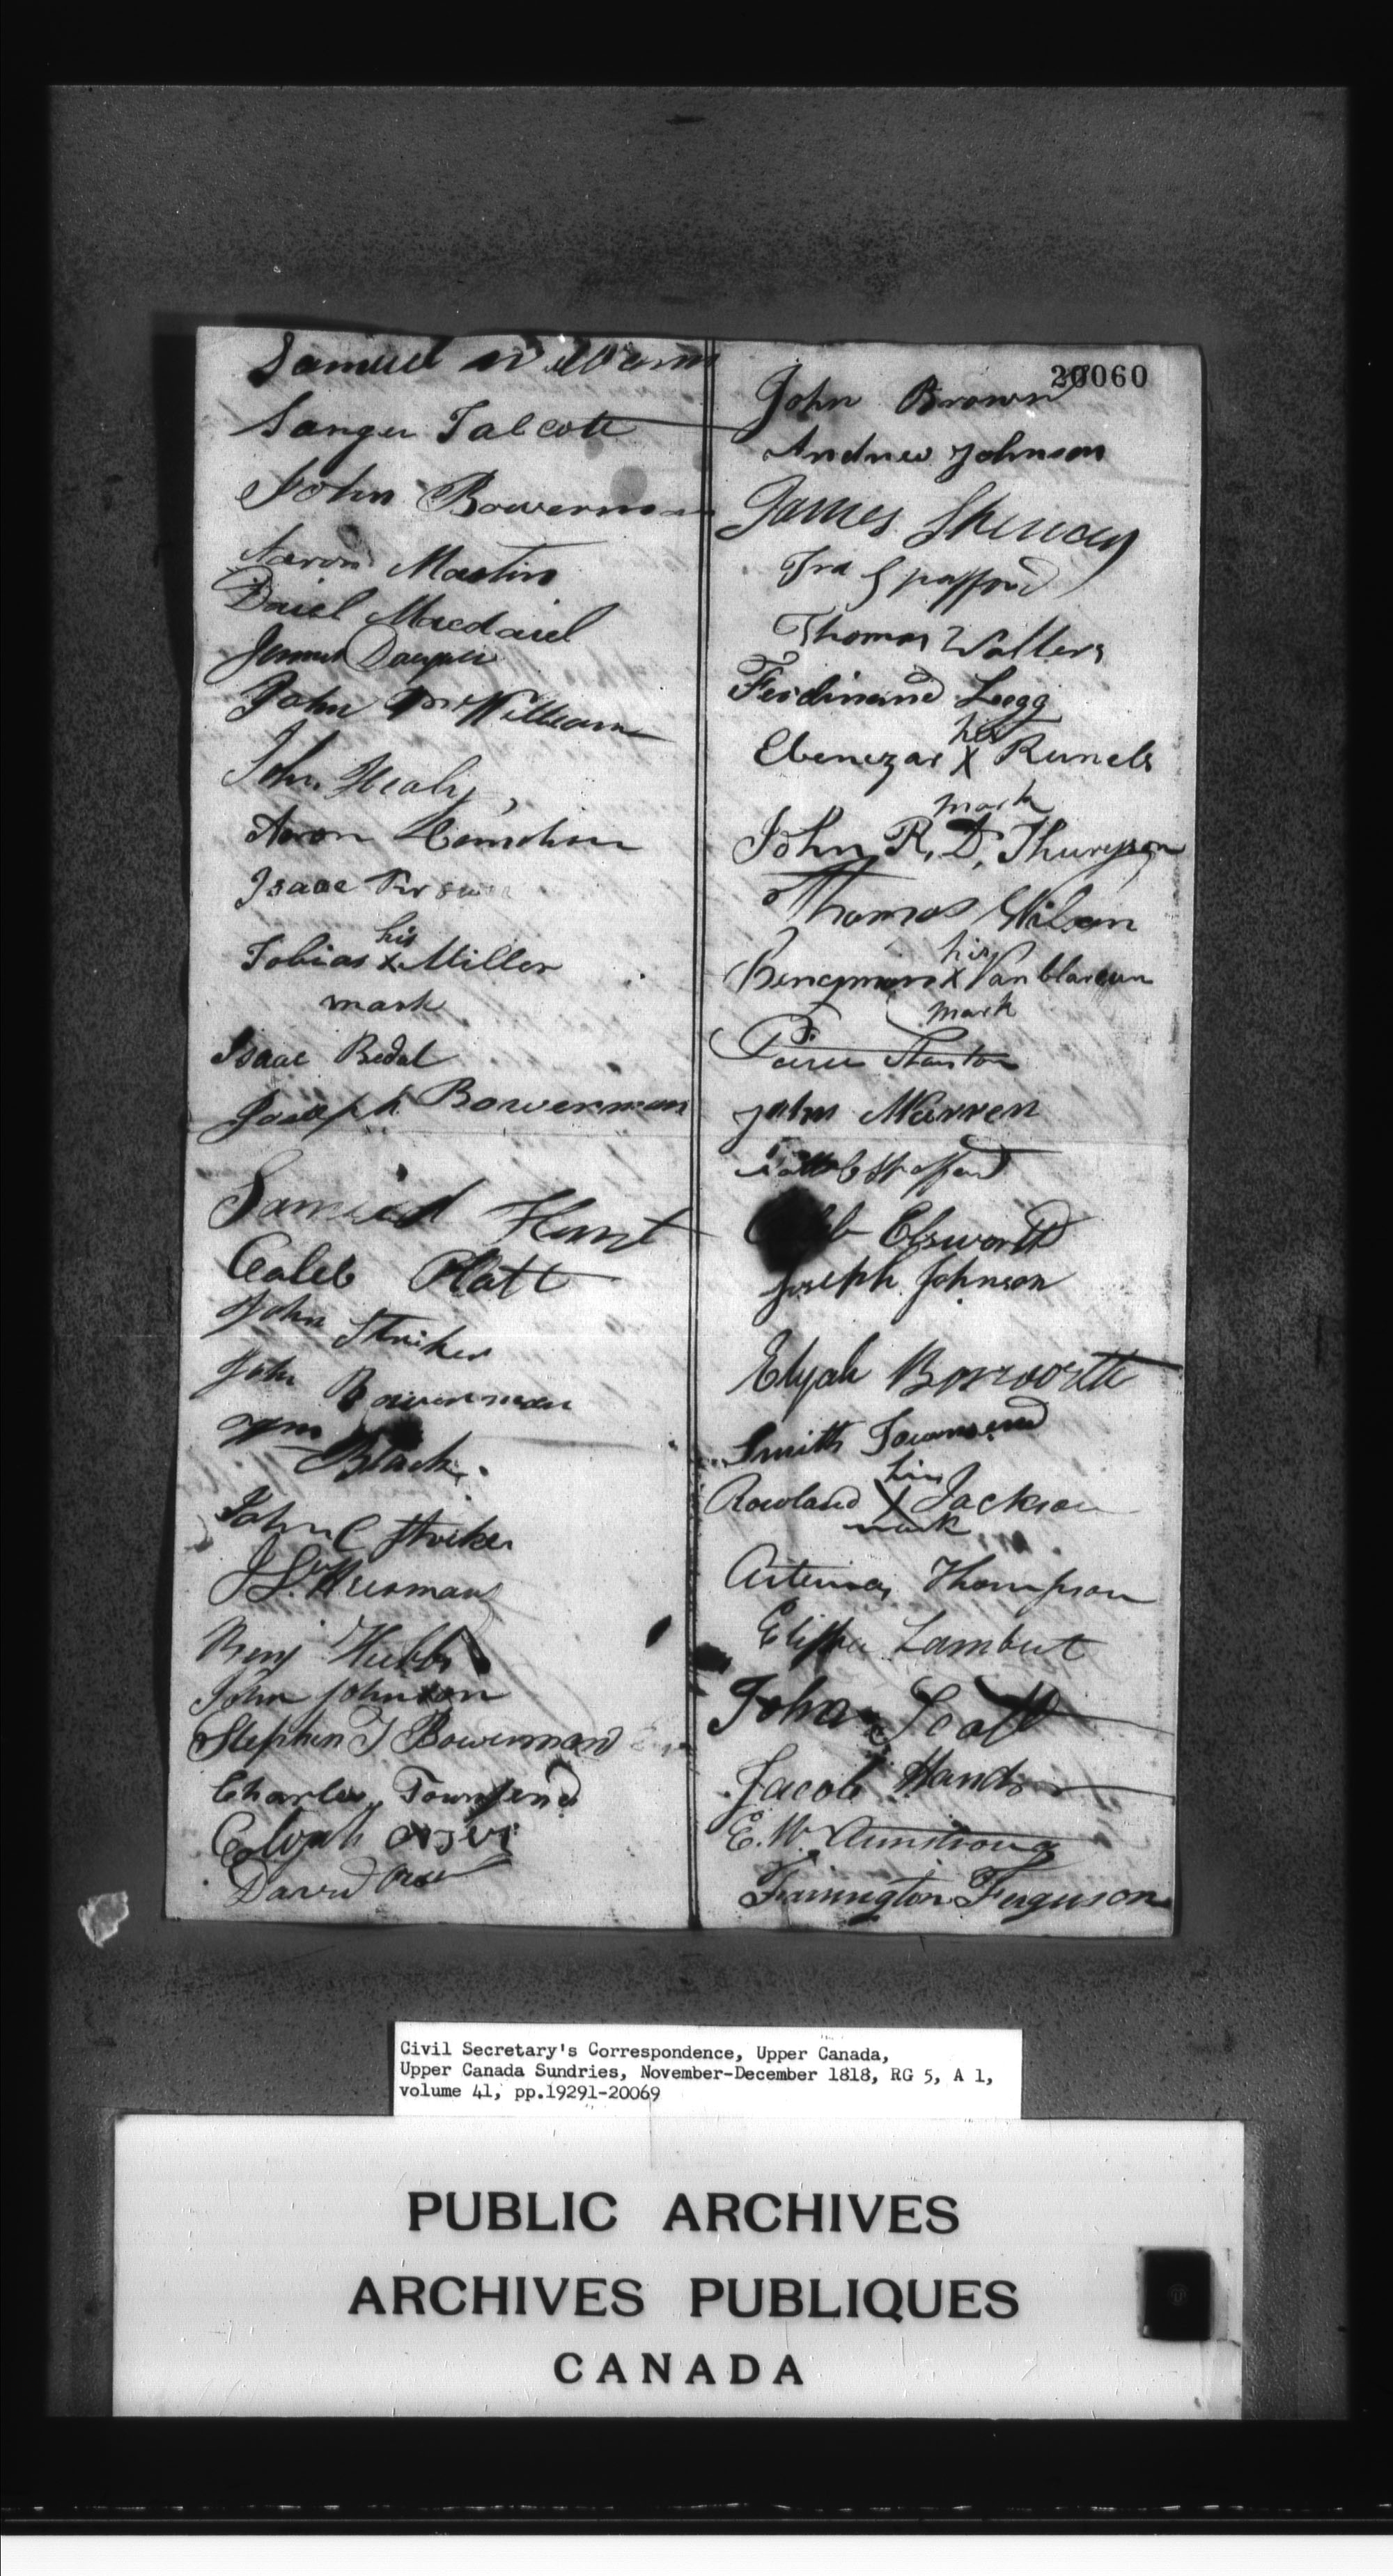 Samuel Williams
Sanger Talcott
John Bowerman
Aaron Martin
Daniel Macdaniel
John McWilliams
John Healy
Aaron
Isaac
his
Tobias X Miller
mark
Isaac Bedal
Joseph Bowerman
Samuel Hunt
Caleb Platt
John Striker
John Bowerman
Wm Black
John C Striker
Benj Hubbs
John Johnson
Stephen T Bowerman
Charles Townsend
Elijah
David
20060
John Brown
Andrew Johnson
James
Ira Spafford
Thomas Wallers
Ferdinand Legg
his
Ebenezar X Runels
mark
John R. D. Thurgson
Thomas Wilson
his
Bengman X Vanblarcun
mark
Peirce Stanton
John Warren
Spafford
Elsworth
Joseph Johnson
Elijah Bozworth
Smith Townsend
his
Rowland X Jackson
mark
Artemas Thompson
Elisha Lambert
John Scott
Jacob Hands
E. W. Armstrong
Farrington Ferguson
Civil Secretary's Correspondence, Upper Canada,
Upper Canada Sundries, November-December 1818, RG 5, A 1,
volume 41, pp.19291-20069
PUBLIC ARCHIVES
ARCHIVES PUBLIQUES
CANADA